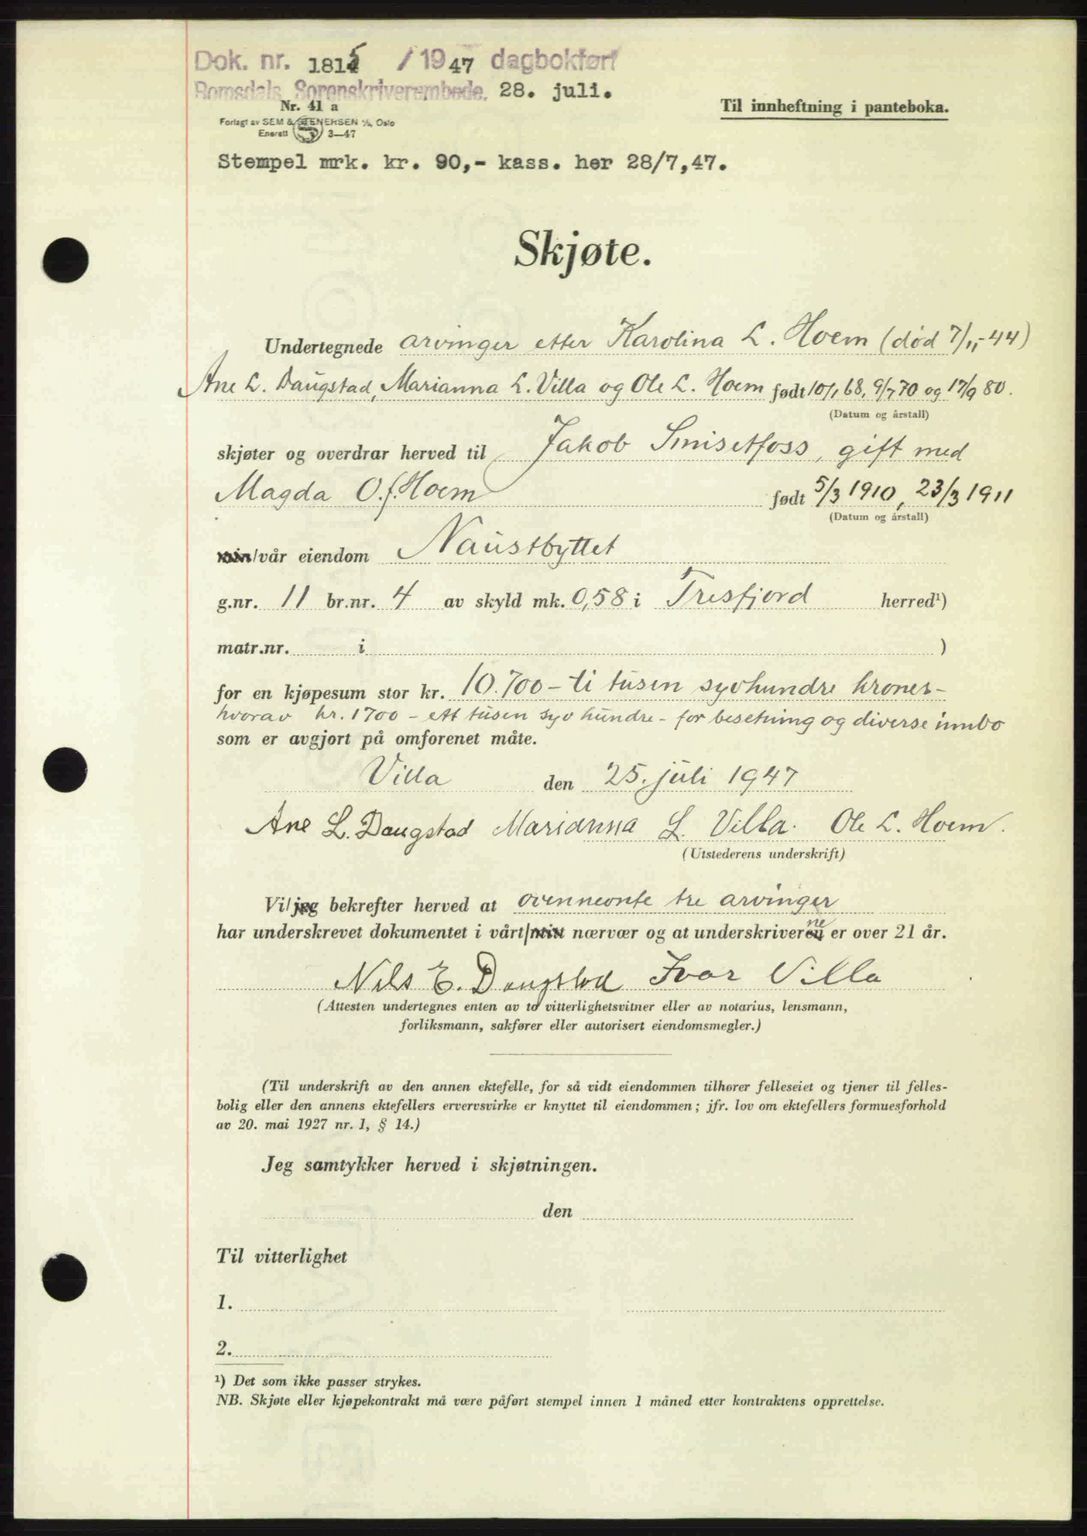 Dok. nr. 1815 / 1947 dagbokført
Romsdals Sorenskriverembede, 28. juli.
Nr. 41 a
Forlagt av SEM & STENERSEN A/S, Oslo
Enerett 3—47
Til innheftning i panteboka.
Stempel mrk. kr. 90,- kass. her 28/7,47.
Skjøte.
Undertegnede arvinger etter Karolina L. Hoem (død 7/1,-44)
Ane L. Daugstad, Marianna L. Villa og Ole L. Hoem født 10/1 68, 9/7 70 og 17/9 80.
(Datum og årstall)
skjøter og overdrar herved til Jakob Smisetfoss, gift med
Magda O. f. Hoem født 5/3 1910, 23/3 1911
(Datum og årstall)
min/vår eiendom Naustbyttet
g.nr. 11 br.nr. 4 av skyld mk. 0,58 i Tresfjord herred¹)
matr.nr. i )
for en kjøpesum stor kr. 10.700 - ti tusen syvhundre kroner-
hvorav kr. 1700 - ett tusen syv hundre - for besetning og diverse innbo
som er avgjort på omforenet måte.
Villa den 25. juli 1947
Ane L. Daugstad Marianna L. Villa. Ole L. Hoem.
(Utstederens underskrift)
Vi/jeg bekrefter herved at ovennevnte tre arvinger
har underskrevet dokumentet i vårt/mitt nærvær og at underskriverne er over 21 år.
Nils E. Daugstad Ivar Villa
(Attesten undertegnes enten av to vitterlighetsvitner eller av notarius, lensmann,
forliksmann, sakfører eller autorisert eiendomsmegler.)
(Til underskrift av den annen ektefelle, for så vidt eiendommen tilhører felleseiet og tjener til felles-
bolig eller den annens ektefellers ervervsvirke er knyttet til eiendommen; jfr. lov om ektefellers formuesforhold
av 20. mai 1927 nr. 1, § 14.)
Jeg samtykker herved i skjøtningen.
den
Til vitterlighet
1.
2.
¹) Det som ikke passer strykes.
NB. Skjøte eller kjøpekontrakt må være påført stempel innen 1 måned etter kontraktens opprettelse.